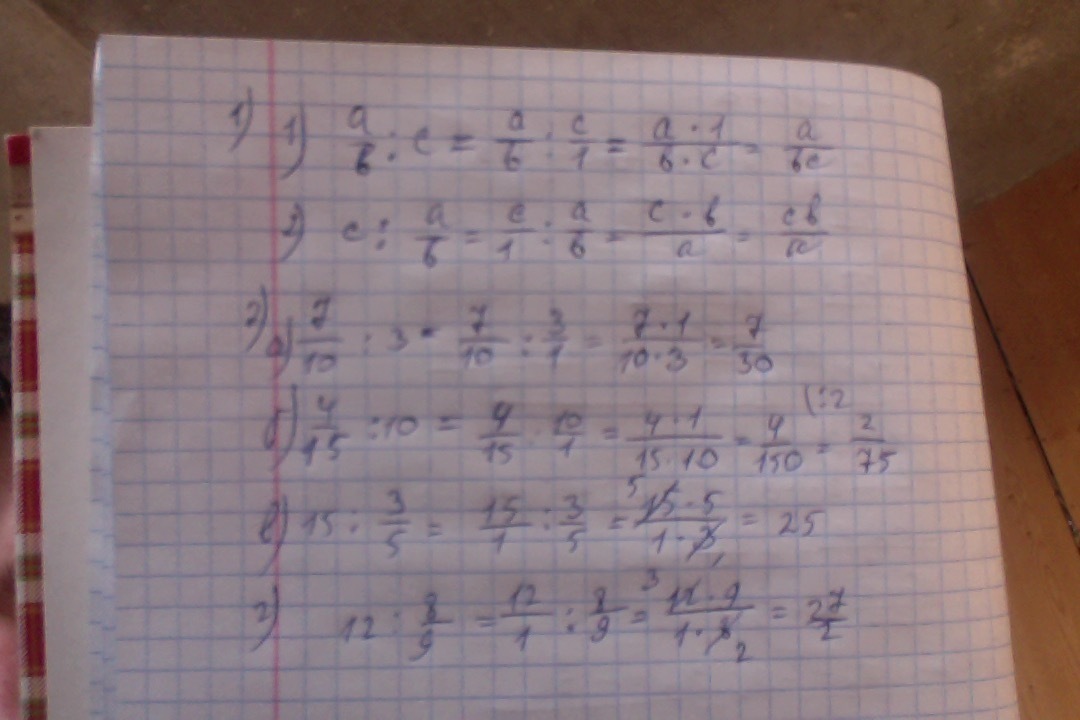 1) 1) a/в : c = a/в : c/1 = a·1/в·c = a/вc
2) c : a/в = c/1 : a/в = c·в/a = cв/a
2) а) 7/10 : 3 = 7/10 : 3/1 = 7·1/10·3 = 7/30
б) 4/15 : 10 = 4/15 : 10/1 = 4·1/15·10 = 4/150 (:2 = 2/75
в) 15 : 3/5 = 15/1 : 3/5 = 5 15·5/1·3 1 = 25
г) 12 : 8/9 = 12/1 : 8/9 = 3 12·9/1·8 2 = 27/2